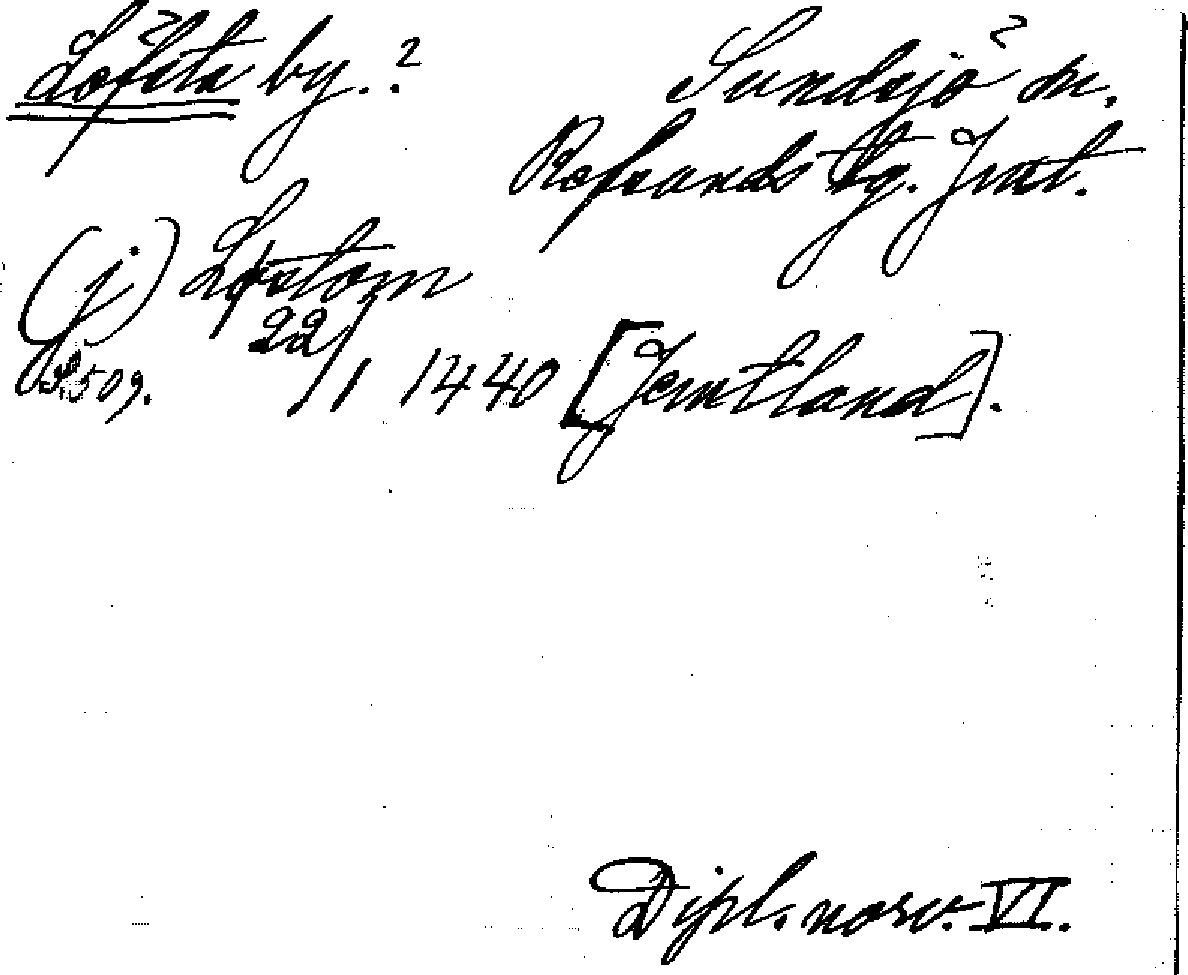 Löfsta by..?
Sundsjö sn.
Refsunds tg. Jmt.
(j) Løfstom
S. 509. 22/1 1440 [Jemtland].
Dipl. norv. VI.